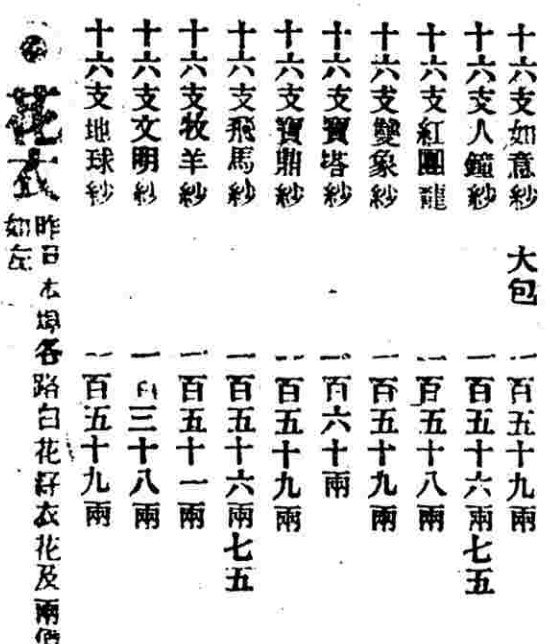 十六支如意紗　大包　一百五十九兩
十六支人鐘紗　一百五十六兩七五
十六支紅團龍　一百五十八兩
十六支雙象紗　一百五十九兩
十六支寶塔紗　一百六十兩
十六支寶鼎紗　一百五十九兩
十六支飛馬紗　一百五十六兩七五
十六支牧羊紗　一百五十一兩
十六支文明紗　一百三十八兩
十六支地球紗　一百五十九兩
花衣
昨日本埠各路白花籽衣花及兩價
如左